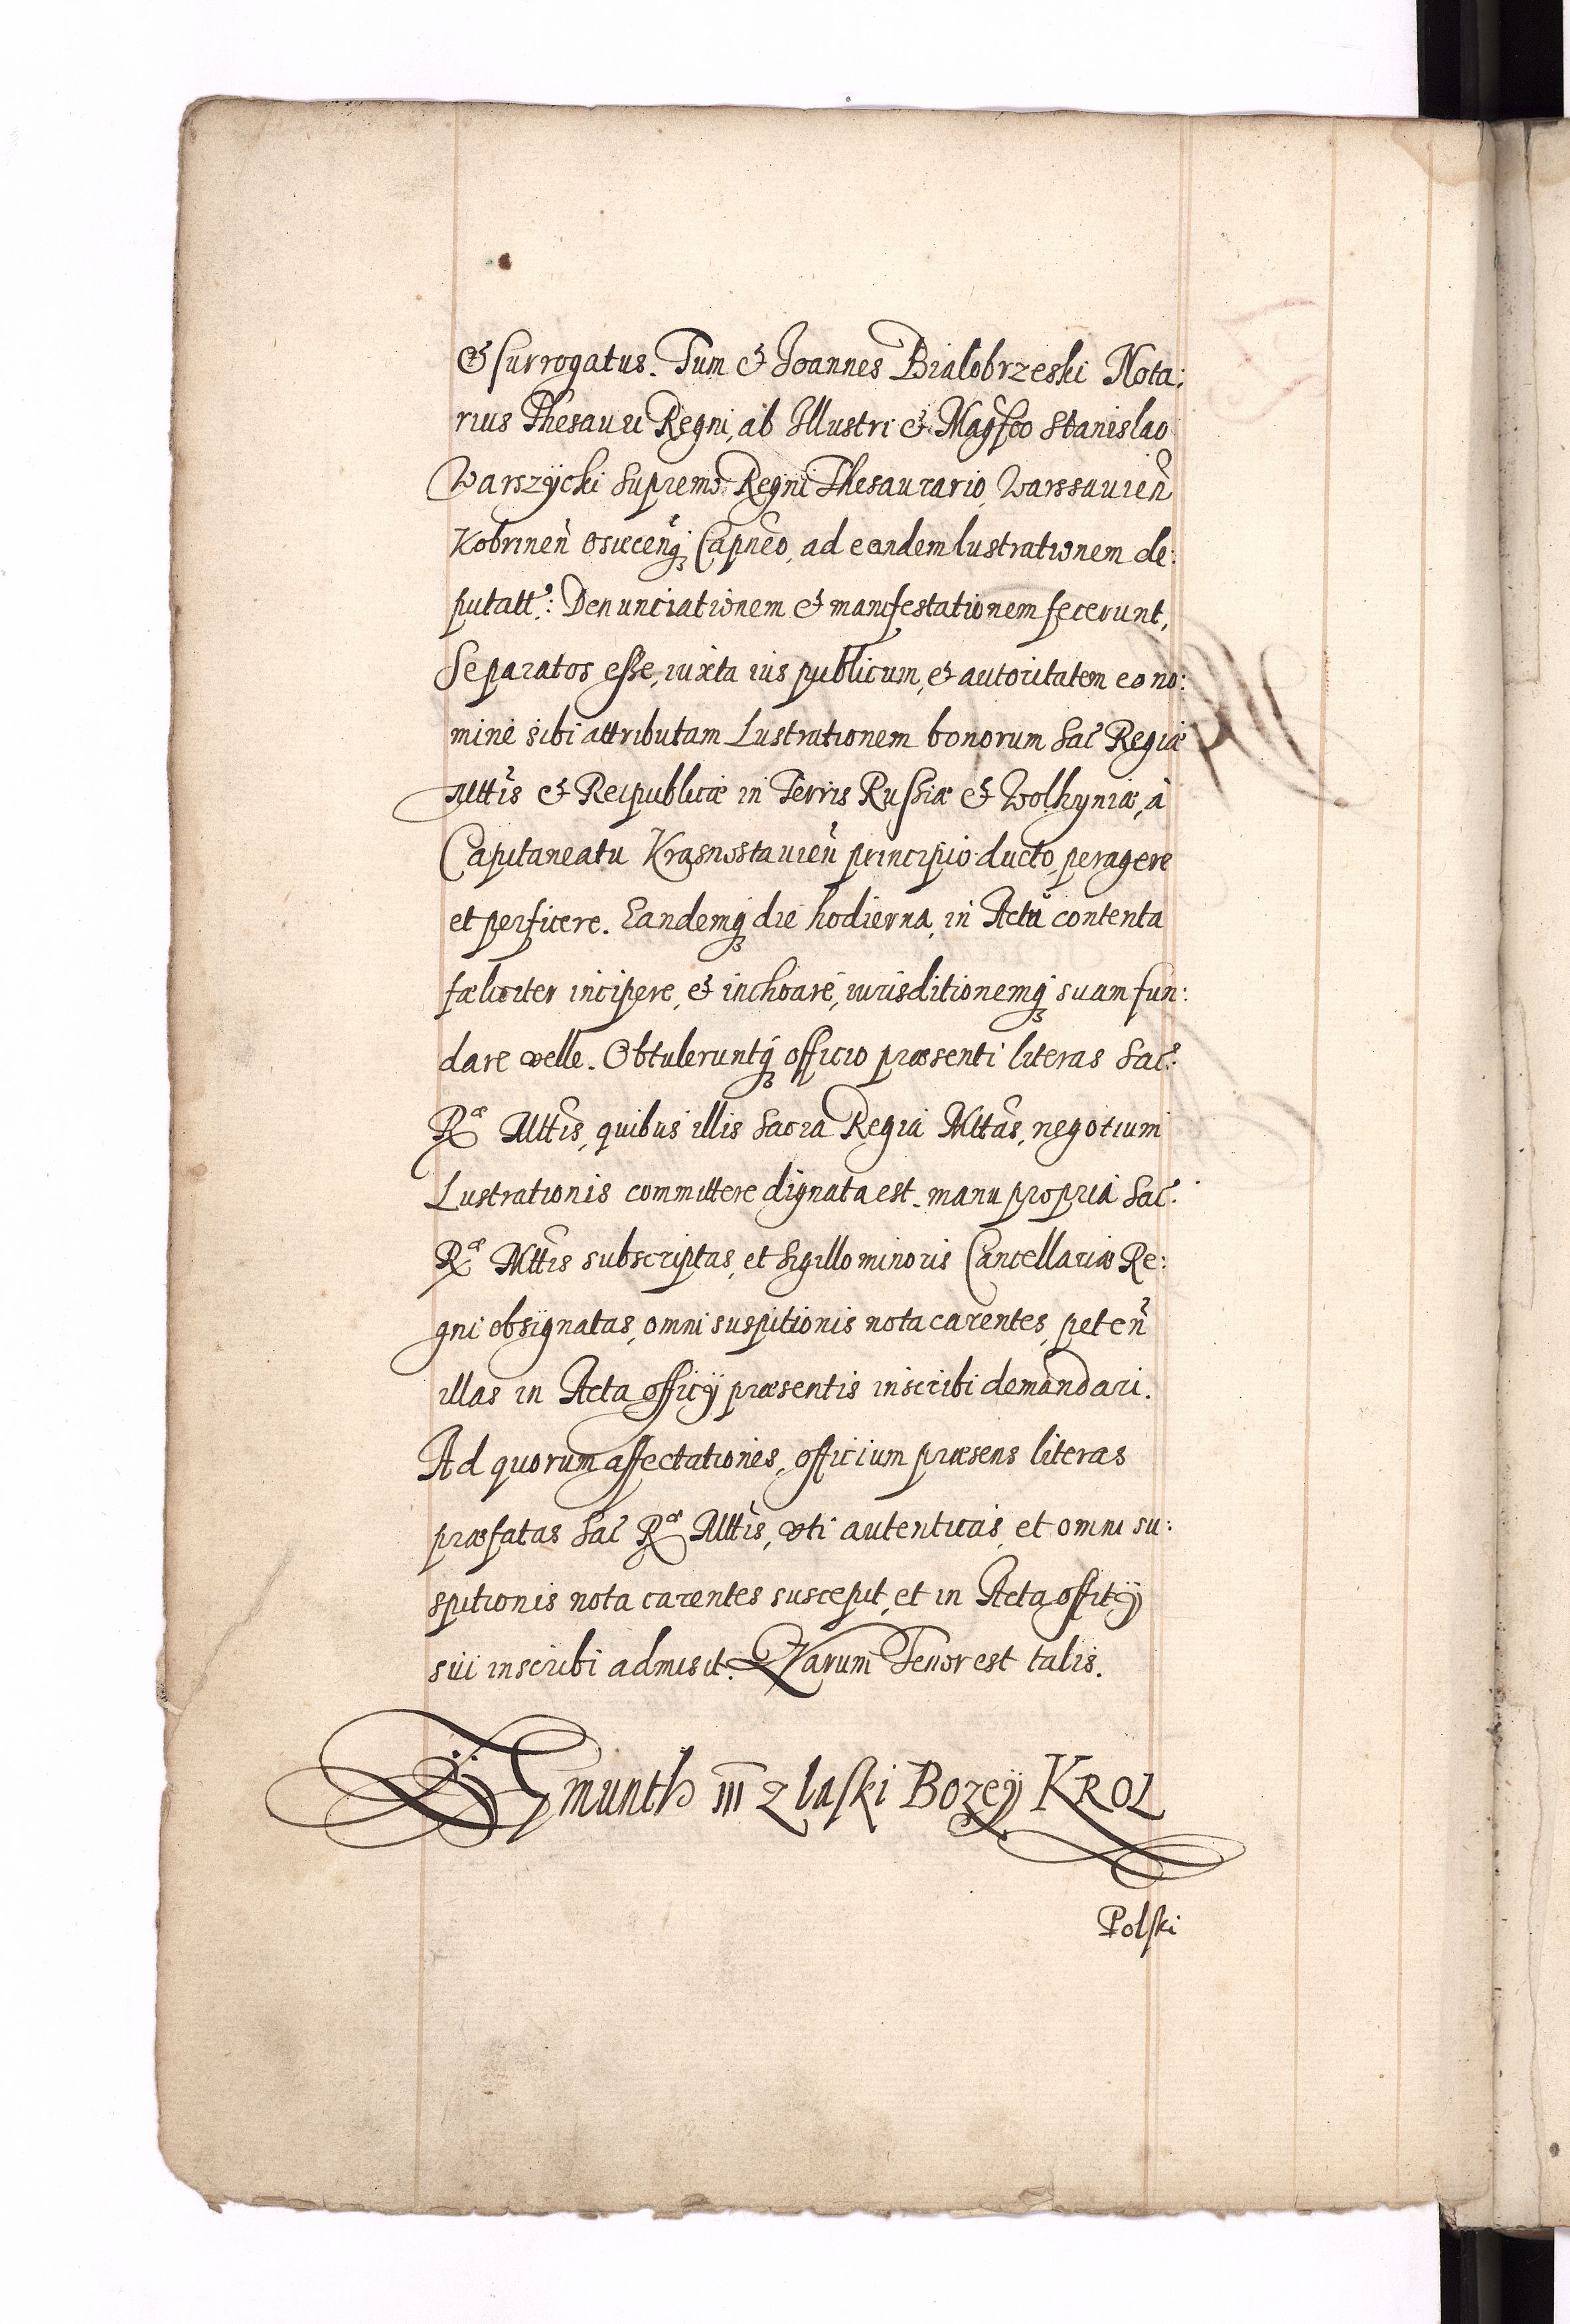 & surrogatus. Tum & Joannes Bialobrzeski Nota:
rius Thesauri Regni, ab Illustri & Magfco Stanislao
Warszÿcki Supremo Regni Thesaurario, Warssauien̄
Kobrinen̄ Osieceñq̄ꝫ Capneo, ad eandem lustrationem de:
putatt: Denunciationem & manifestationem fecerunt,
Se paratos esse, iuxta ius publicum, & autoritatem eo no:
mine sibi attributam Lustrationem bonorum Sac̃ Regiæ
Mttis & Reipublicæ in Terris Russiæ & Wolhyniæ, à
Capitaneatu Krasnostauien̄ principio ducto, peragere
et perficere. Eandemqꝫ die hodierna, in Actũ contenta
fæliciter incipere, & inchoare, iurisditionemqꝫ suam fun:
dare velle. Obtuleruntqꝫ officio præsenti literas Sac̃:
Ræ Mttis, quibus illis Sacra Regia Mttas, negotium
Lustrationis committere dignata est. manu propria Sac̃:
Ræ Mttis subscriptas, et Sigillo minoris Cancellariæ Re:
gni obsignatas, omni suspitionis nota carentes, peten̄
illas in Acta officÿ præsentis inscribi demandari.
Ad quorum affectationes, officium præsens literas
præfatas Sac̃ Ræ Mttis, vti autenticas, et omni su:
spitionis nota carentes suscepit, et in Acta offitÿ
sui inscribi admisit. Quarum Tenor est talis.
ZŸGmunth III z laski Bozeÿ KROL
Polski